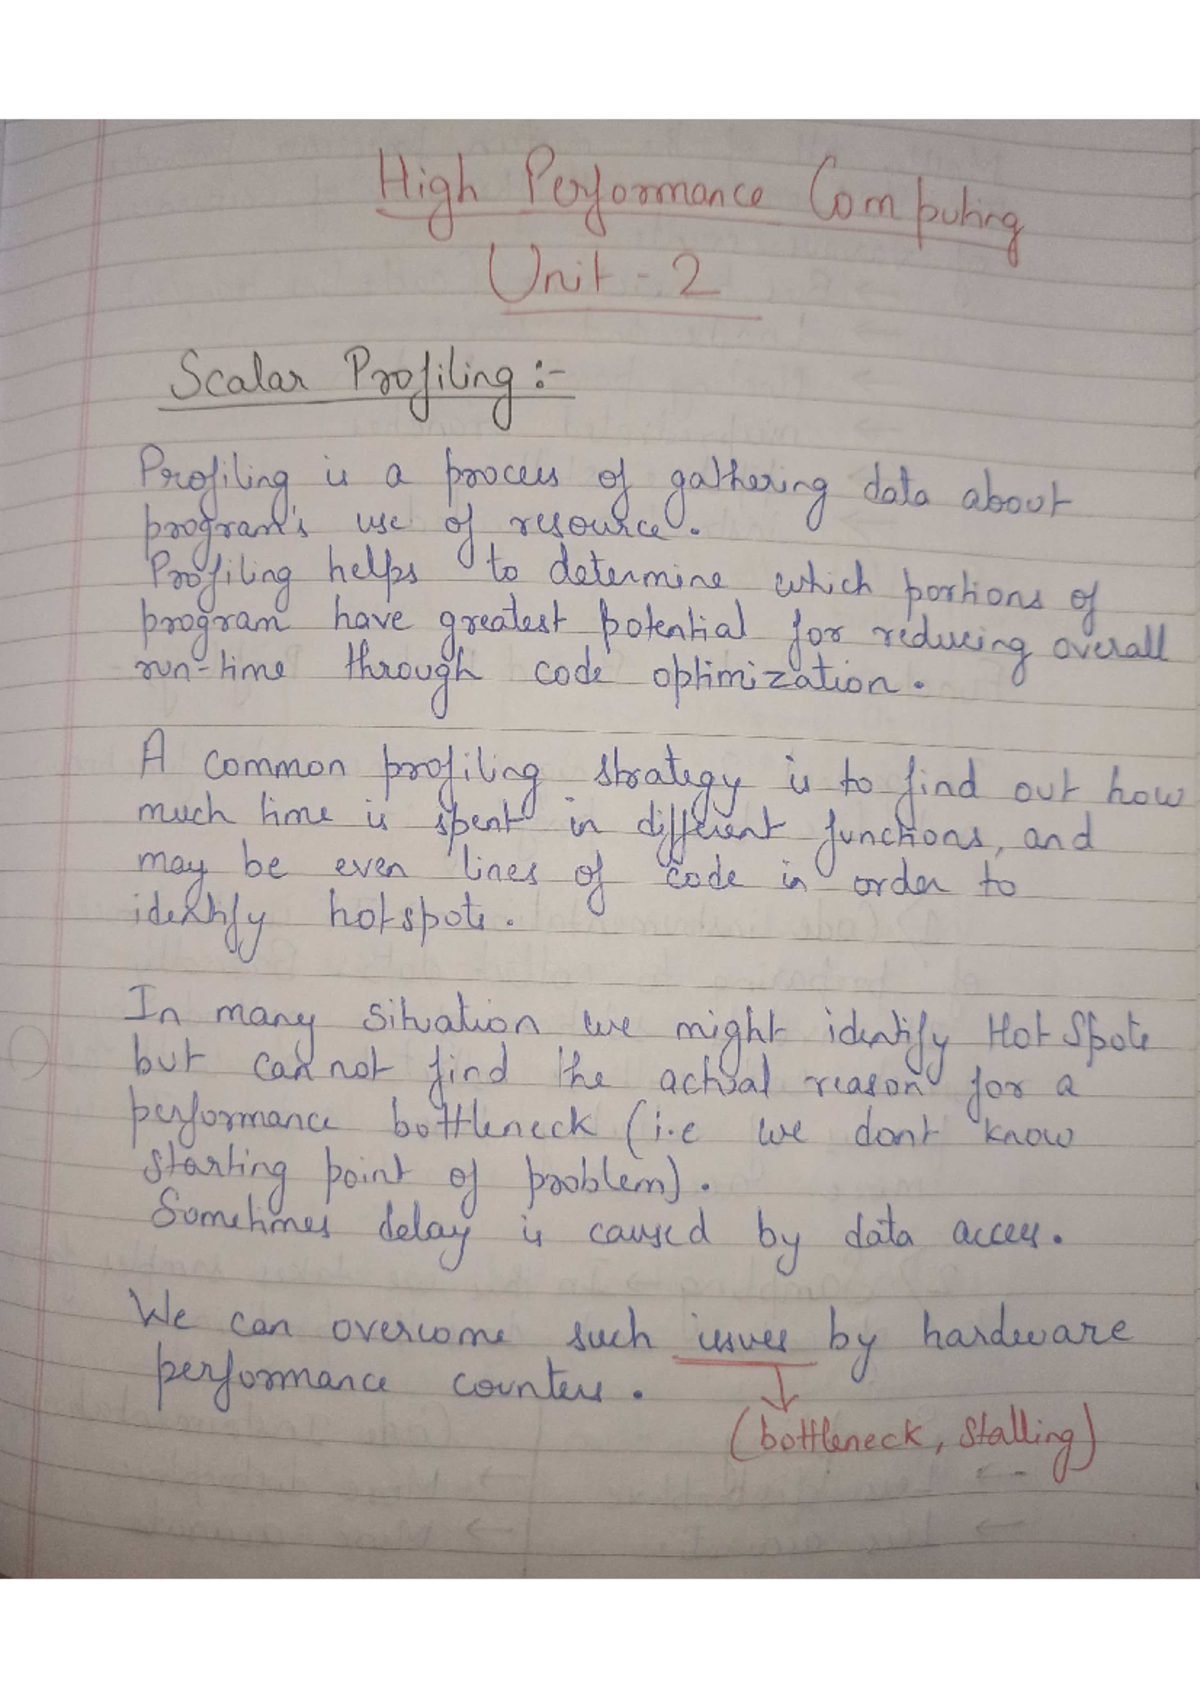 High Performance Computing
Unit - 2
Scalar Profiling :-
Profiling is a process of gathering data about
program's use of resource.
Profiling helps to determine which portions of
program have greatest potential for reducing overall
run-time through code optimization.
A common profiling strategy is to find out how
much time is spent in different functions, and
may be even lines of code in order to
identify hotspots.
In many situation we might identify Hot Spots
but can not find the actual reason for a
performance bottleneck (i.e we dont know
starting point of problem).
Sometimes delay is caused by data access.
We can overcome such issues by hardware
performance counters.
(bottleneck, stalling)